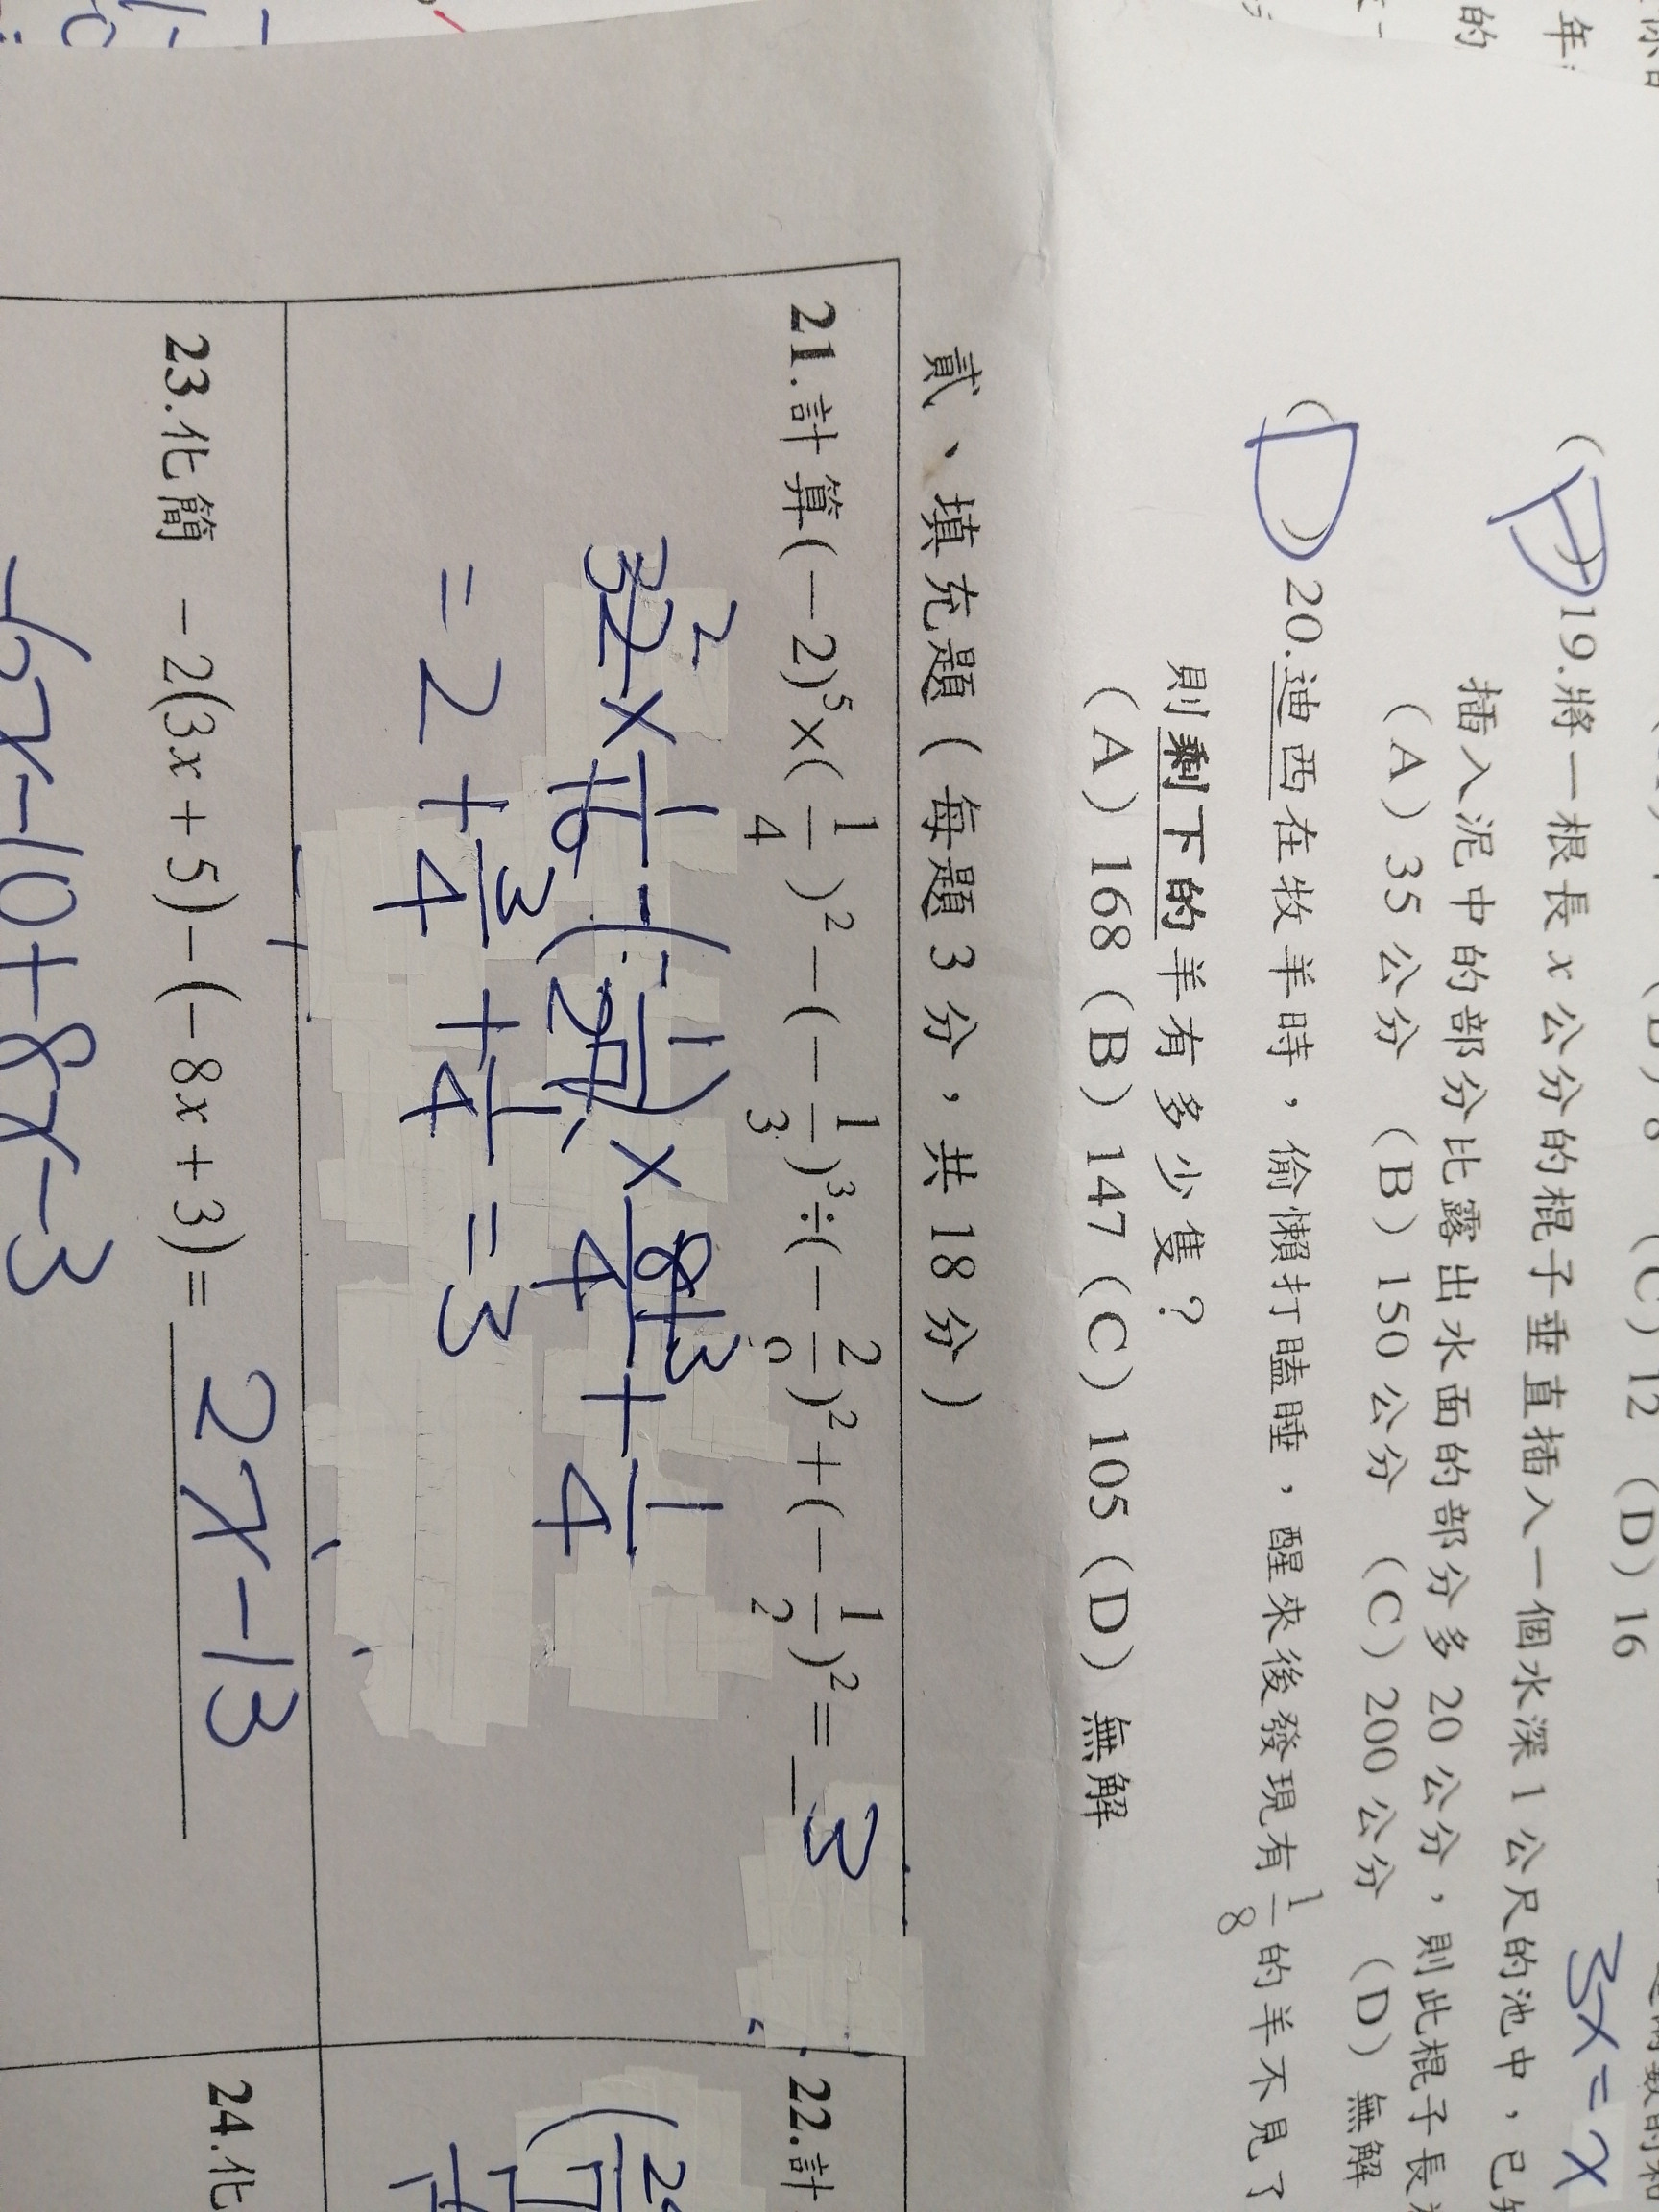 年
的
(C) 12 (D) 16
3x = x
(D) 19.將一根長 x 公分的棍子垂直插入一個水深 1 公尺的池中，已
插入泥中的部分比露出水面的部分多 20 公分，則此棍子長
(A) 35 公分 (B) 150 公分 (C) 200 公分 (D) 無解
(D) 20.迪西在牧羊時，偷懶打瞌睡，醒來後發現有 1/8 的羊不見了
則剩下的羊有多少隻？
(A) 168 (B) 147 (C) 105 (D) 無解
貳、填充題（每題 3 分，共 18 分）
21.計算(－2)⁵×(1/4)²－(－1/3)³÷(－2/9)²＋(－1/2)²＝ 3
32 × 1/16 - (-1/27) × 81/4 + 1/4
= 2 + 3/4 + 1/4 = 3
22.計
23.化簡 －2(3x＋5)－(－8x＋3)＝ 2x-13
-6x-10+8x-3
24.化